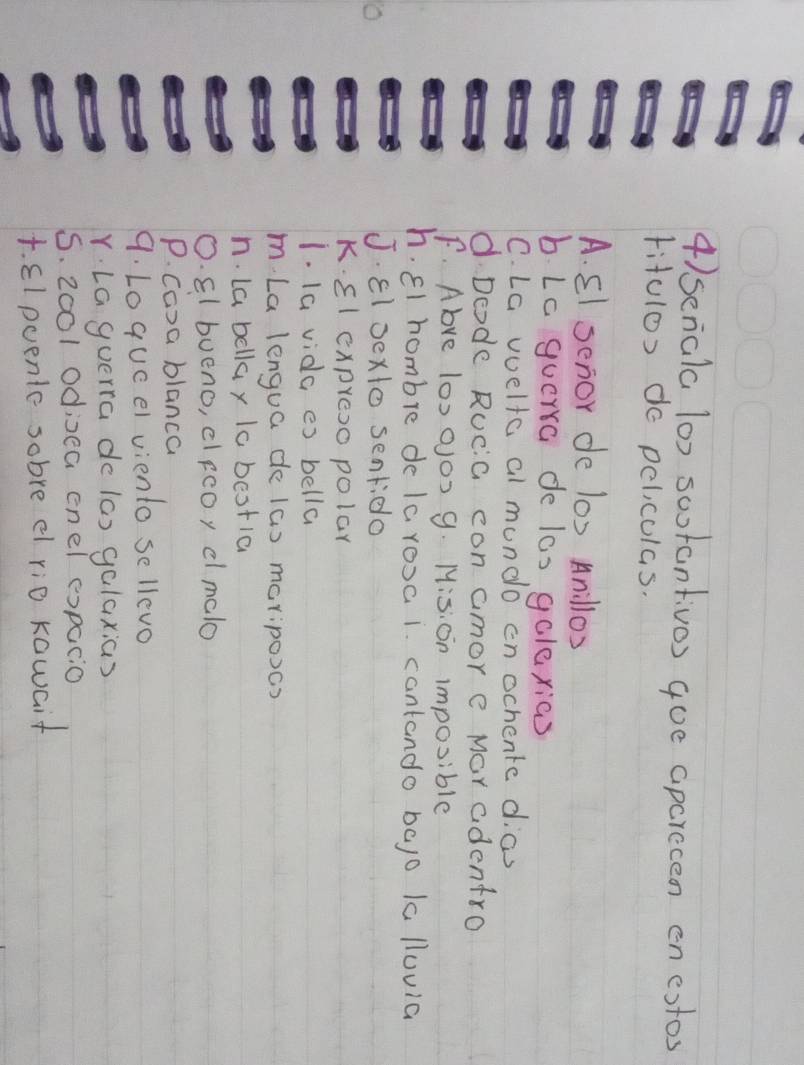 4) Señala los sustantivos que aparecen en estos
titulos de peliculas.
A El señor de los Anillos
b. La guerra de las galaxias
C. La vuelta al mundo en ochenta dias
d Desde Rucia con amor e Mar adentro
f. Abre los ojos g. Misión imposible
h. El hombre de la rosa i. cantando bajo la lluvia
J. El sexto sentido
K. El expreso polar
l. la vida es bella
m. La lengua de las mariposas
n. La bella y la bestia
O. El bueno, el feo y el malo
P. casa blanca
q. Lo que el viento se llevo
r. La guerra de las galaxias
S. 2001 odisea en el espacio
t. El puente sobre el rio Kawait